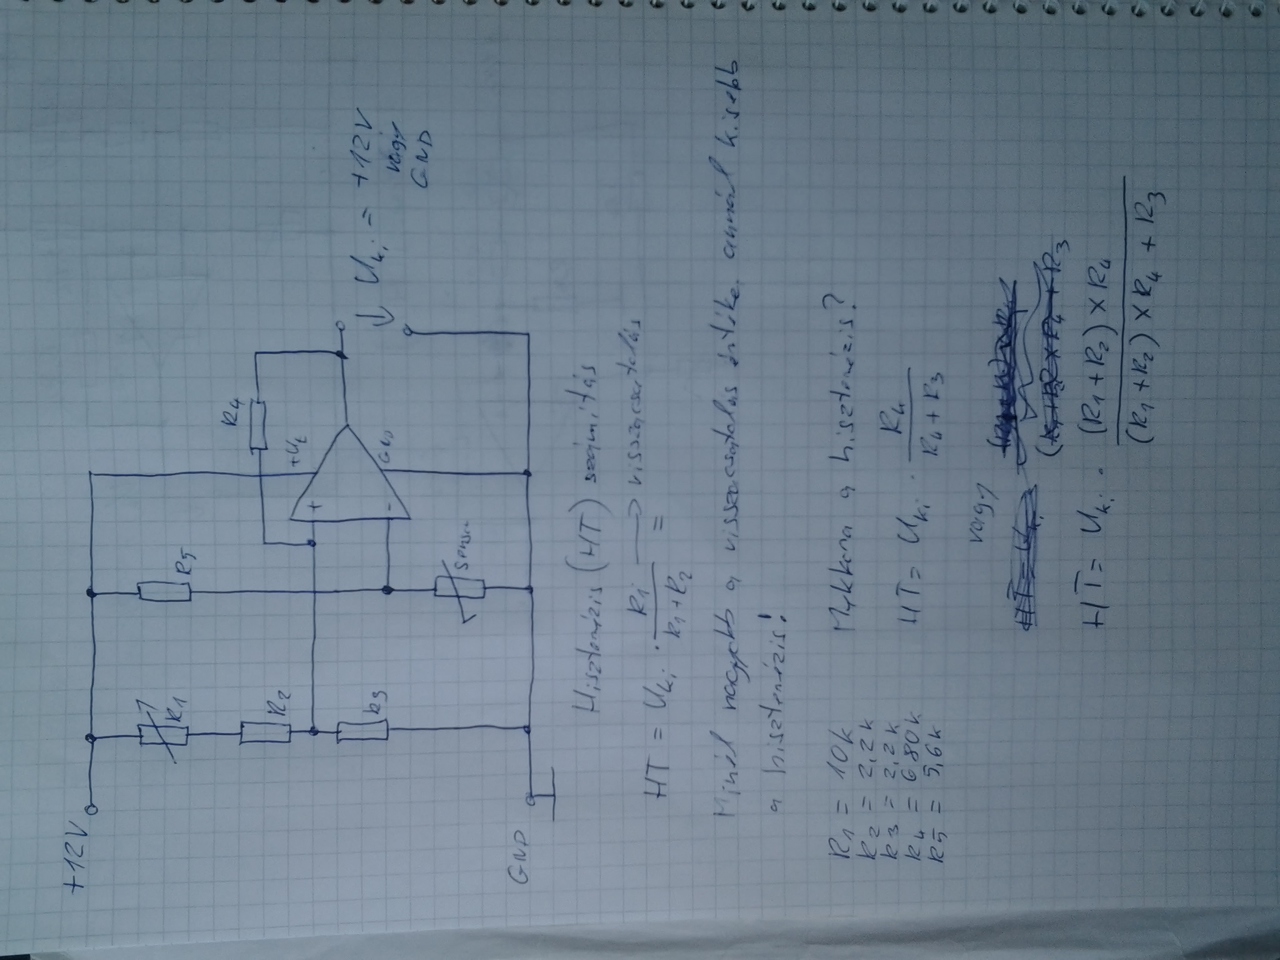 +12V
R1
R2
R3
R5
R4
+Ut
GND
+
-
sensor
GND
↓ Uki = +12V
vagy
GND
Hiszterézis (HT) számítás
HT = Uki · R1 / R1+R2 → visszacsatolás
=
Minél nagyobb a visszacsatolás értéke, annál kisebb
a hiszterézis!
R1 = 10k
R2 = 2,2k
R3 = 2,2k
R4 = 680k
R5 = 5,6k
Mekkora a hiszterézis?
HT = Uki · R4 / R4+R3
vagy
HT = Uki · (R1+R2) × R4 / (R1+R2) × R4 + R3